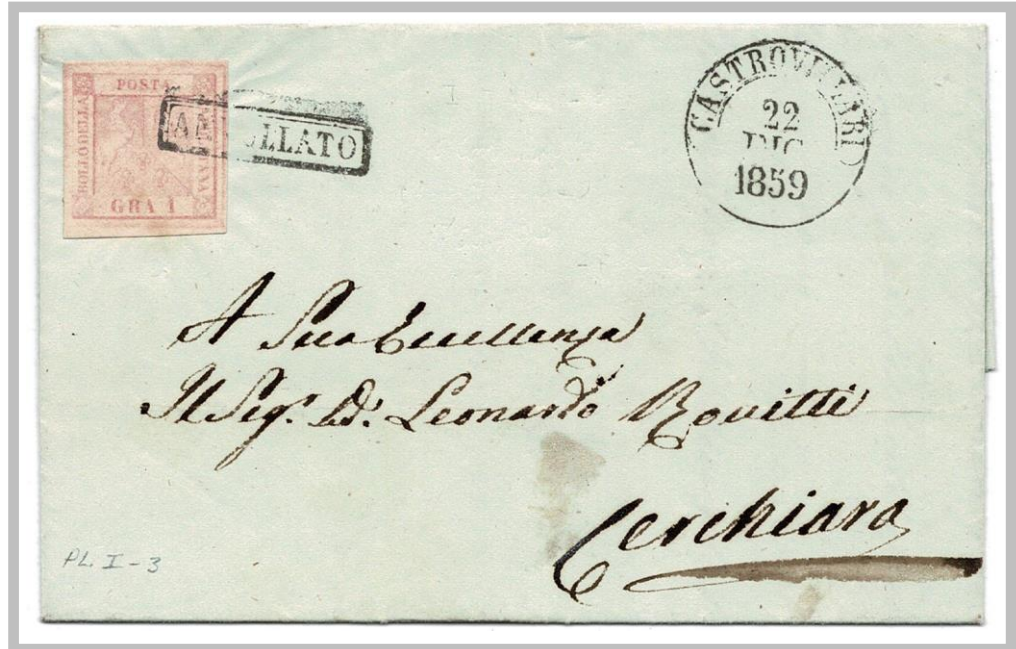 POSTA
BOLLO DELLA
GRA 1
ANNULLATO
CASTROVILLARI
22
DIC
1859
A Sua Eccellenza
Il Sigr. D. Leonardo Rovitti
Cerchiara
PL I-3